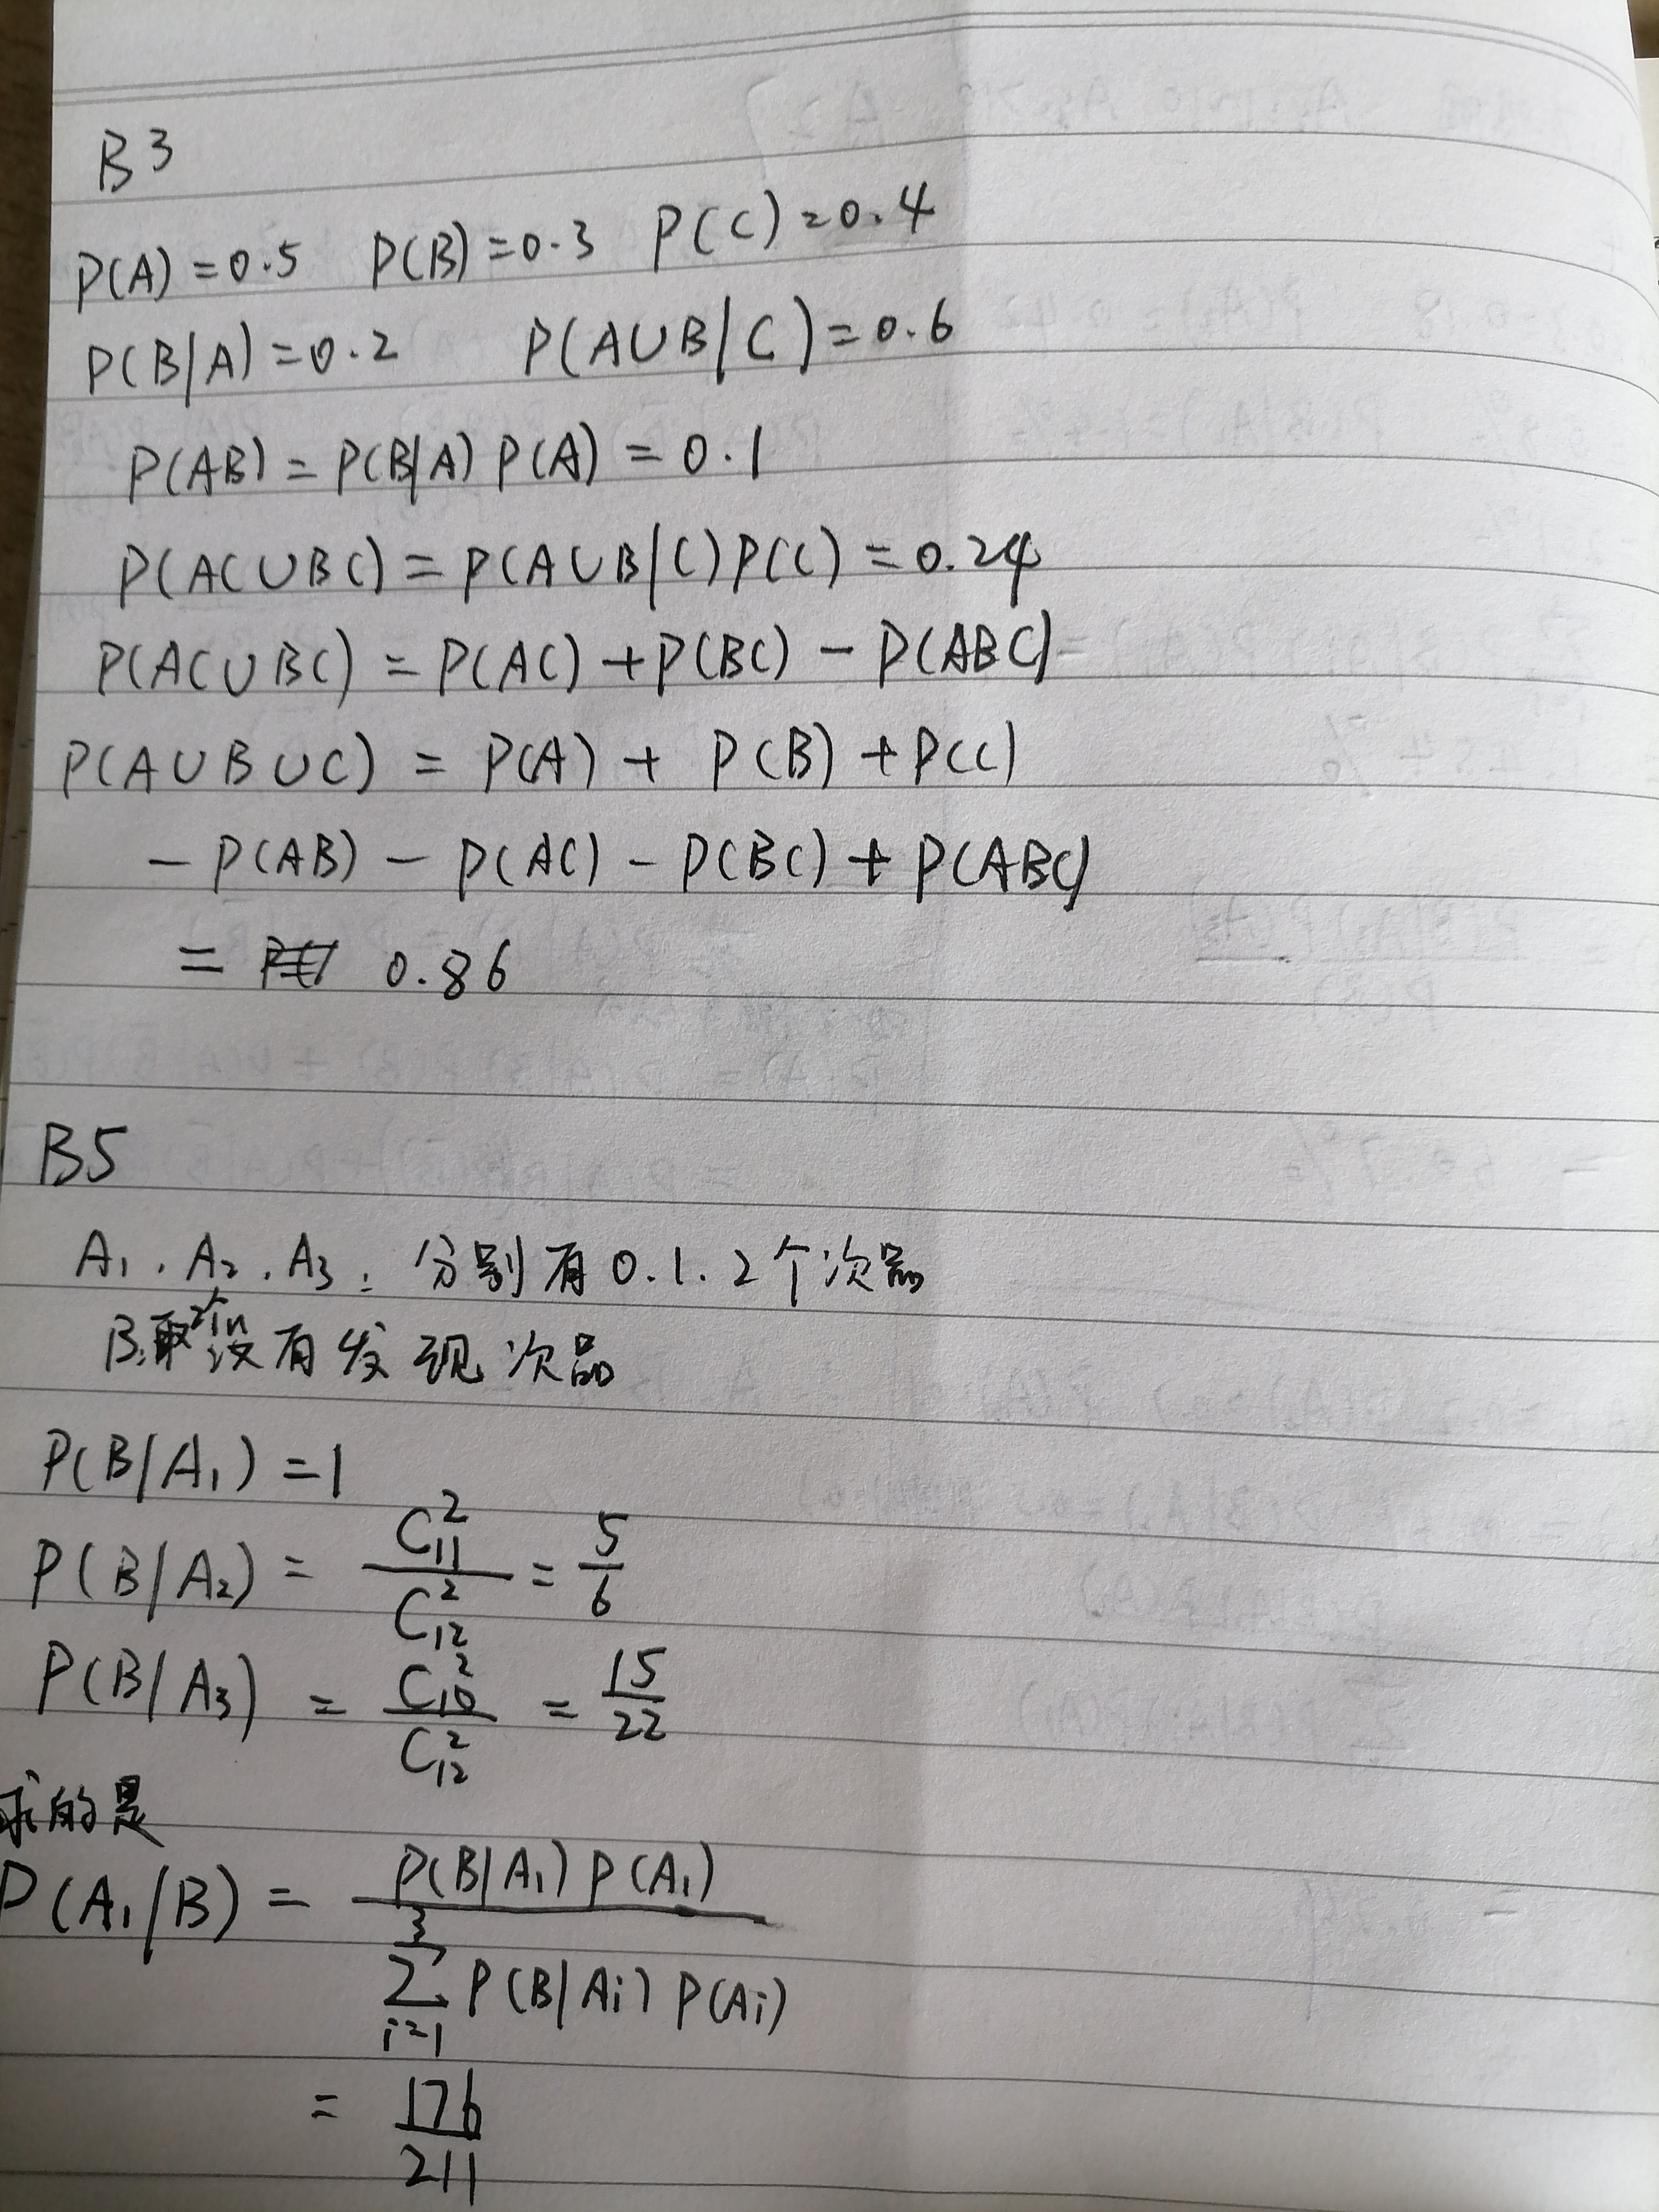 B3
P(A)=0.5 P(B)=0.3 P(C)=0.4
P(B|A)=0.2 P(A∪B|C)=0.6
P(AB)=P(B|A)P(A)=0.1
P(AC∪BC)=P(A∪B|C)P(C)=0.24
P(AC∪BC)=P(AC)+P(BC)-P(ABC)
P(A∪B∪C)=P(A)+P(B)+P(C)
-P(AB)-P(AC)-P(BC)+P(ABC)
=0.86
B5
A₁.A₂.A₃:分别有0.1.2个次品
B:取2个没有发现次品
P(B|A₁)=1
P(B|A₂)=C²₁₁/C²₁₂=5/6
P(B|A₃)=C²₁₀/C²₁₂=15/22
求的是
P(A₁|B)=P(B|A₁)P(A₁)/∑³ᵢ₌₁P(B|Ai)P(Ai)
=176/211